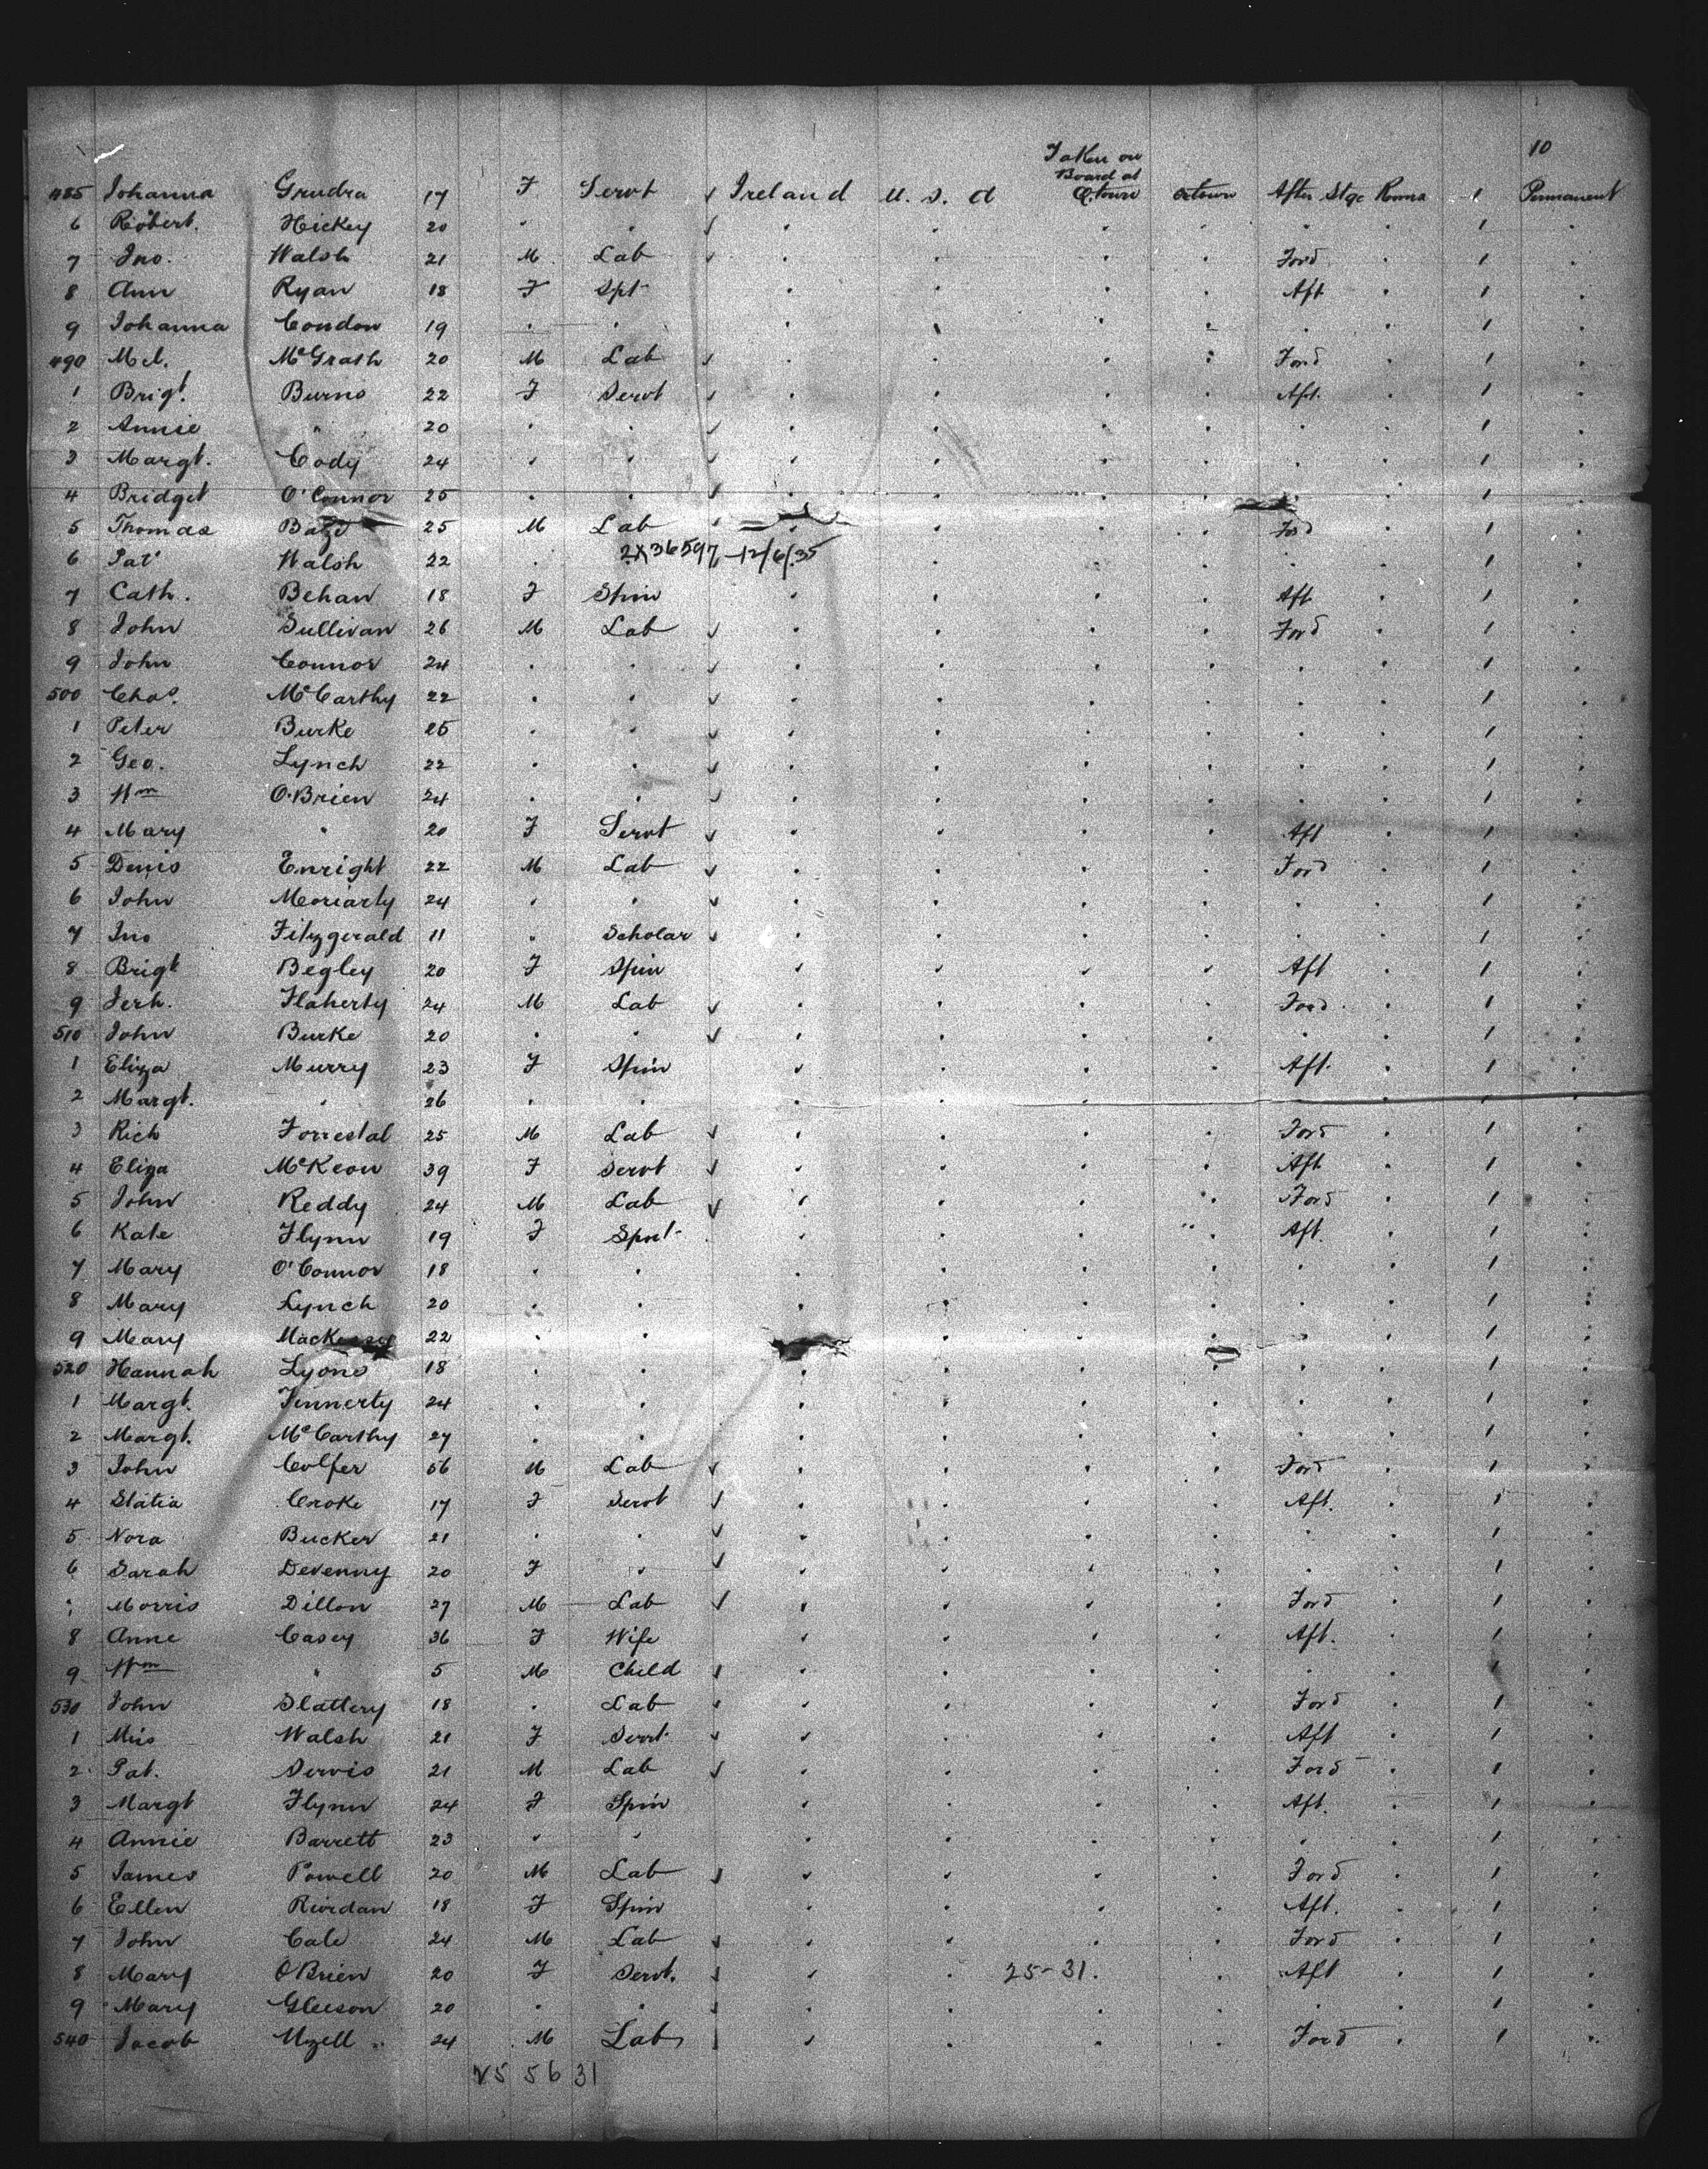 10
Taken on
Board at
485 Johanna Grudra 17 F Servt Ireland U. S. A Q.town Qtown After Stge Rooms 1 Permanent
6 Robert. Hickey 20 " " " " " " " " 1 "
7 Jno. Walsh 21 M Lab " " " " Ford " 1 "
8 Ann Ryan 18 F Spt " " " " Aft " 1 "
9 Johanna Condon 19 " " " " " " " 1 "
490 Ml. McGrath 20 M Lab " " " " Ford " 1 "
1 Brigt. Burns 22 F Servt " " " " Aft. " 1 "
2 Annie " 20 " " " " " " " " 1 "
3 Margt. Cody 24 " " " " " " " " 1 "
4 Bridget O'Connor 25 " " " " " " " 1 "
5 Thomas 25 M Lab " " " " Ford " 1 "
6 Pat Walsh 22 " 2X36597-12/6/35 " " " " " 1 "
7 Cath. Behan 18 F Spin " " " " Aft " 1 "
8 John Sullivan 26 M Lab " " " " Ford " 1 "
9 John Connor 24 " " " " " " " " 1 "
500 Chas. McCarthy 22 " " " " " " " " 1 "
1 Peter Burke 25 " " " " " " " " 1 "
2 Geo. Lynch 22 " " " " " " " " 1 "
3 Wm O'Brien 24 " " " " " " " " 1 "
4 Mary " 20 F Servt " " " " Aft " 1 "
5 Denis Enright 22 M Lab " " " " Ford " 1 "
6 John Moriarty 24 " " " " " " " " 1 "
7 Jno Fitzgerald 11 " Scholar " " " " " " 1 "
8 Brigt Begley 20 F Spin " " " " Aft " 1 "
9 Jerh. Flaherty 24 M Lab " " " " Ford " 1 "
510 John Burke 20 " " " " " " " " 1 "
1 Eliza Murry 23 F Spin " " " " Aft. " 1 "
2 Margt. " 26 " " " " " " " 1 "
3 Rich Forrestal 25 M Lab " " " " Ford " 1 "
4 Eliza McKeon 39 F Servt " " " " Aft " 1 "
5 John Reddy 24 M Lab " " " " Ford " 1 "
6 Kate Flynn 19 F Spnt " " " " Aft. " 1 "
7 Mary O'Connor 18 " " " " " " " " 1 "
8 Mary Lynch 20 " " " " " " " " 1 "
9 Mary 22 " " " " " " 1 "
520 Hannah Lyons 18 " " " " " " " " 1 "
1 Margt. Finnerty 24 " " " " " " " " 1 "
2 Margt. McCarthy 27 " " " " " " " " 1 "
3 John Colfer 56 M Lab " " " " Ford " 1 "
4 Statia Croke 17 F Servt " " " " Aft. " 1 "
5 Nora Bucker 21 " " " " " " " " 1 "
6 Sarah Devenny 20 F " " " " " " " 1 "
Morris Dillon 27 M Lab " " " " Ford " 1 "
8 Anne Casey 36 F Wife " " " " Aft. " 1 "
9 Wm " 5 M Child " " " " " " 1 "
530 John Slattery 18 " Lab " " " " Ford " 1 "
1 Miss Walsh 21 F Servt " " " " Aft " 1 "
2 Pat. Servis 21 M Lab " " " " Ford " 1 "
3 Margt Flynn 24 F Spin " " " " Aft. " 1 "
4 Annie Barrett 23 " " " " " " " " 1 "
5 James Powell 20 M Lab " " " " Ford " 1 "
6 Ellen Riordan 18 F Spin " " " " Aft. " 1 "
7 John Cale 24 M Lab " " " " Ford " 1 "
8 Mary O'Brien 20 F Servt. " " 25-31. " Aft " 1 "
9 Mary Gleeson 20 " " " " " " " " 1 "
540 Jacob Uzell 24 M Lab " " " " Ford " 1 "
V5 56 31